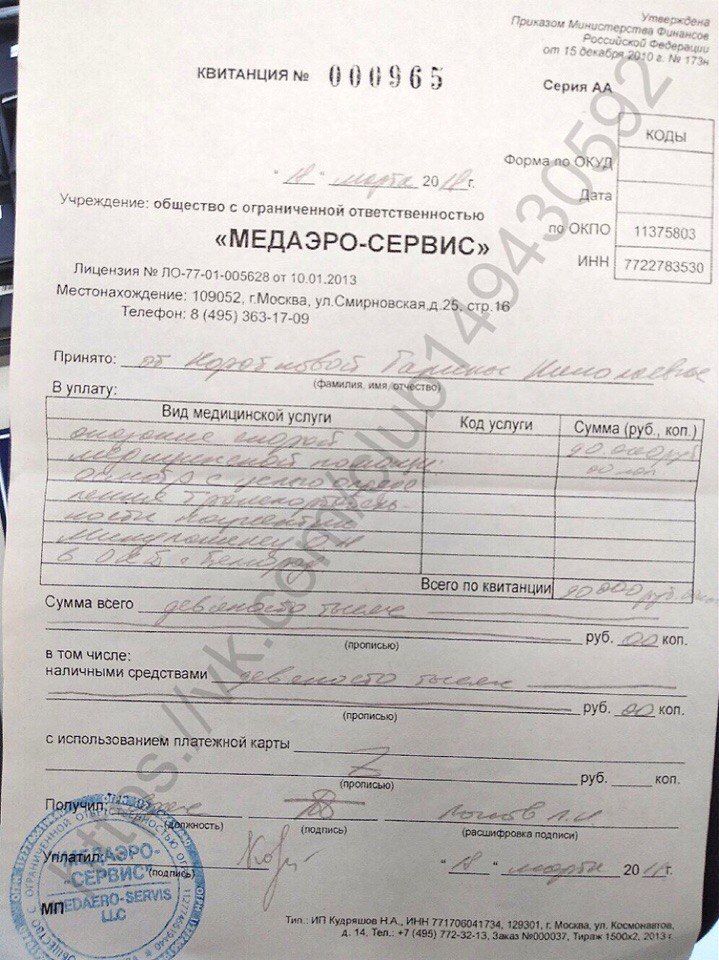 Утверждена
Приказом Министерства Финансов
Российской Федерации
от 15 декабря 2010 г. № 173н
КВИТАНЦИЯ № 000965
Серия АА
КОДЫ
Форма по ОКУД
"18" марта 2018 г.
Дата
Учреждение: общество с ограниченной ответственностью
по ОКПО 11375803
«МЕДАЭРО-СЕРВИС»
ИНН 7722783530
Лицензия № ЛО-77-01-005628 от 10.01.2013
Местонахождение: 109052, г.Москва, ул.Смирновская,д.25, стр.16
Телефон: 8 (495) 363-17-09
Принято: от Коротковой Николаевны
(фамилия, имя, отчество)
В уплату:
Вид медицинской услуги Код услуги Сумма (руб., коп.)
оказание скорой 90 000 руб
медицинской помощи 00 коп
осмотр с целью
ности пациентки
Всего по квитанции 90 000 руб.
Сумма всего девяносто тысяч
руб. 00 коп.
(прописью)
в том числе:
наличными средствами девяносто тысяч
руб. 00 коп.
(прописью)
с использованием платежной карты
руб. коп.
(прописью)
Получил:
(должность) (подпись) (расшифровка подписи)
Уплатил:
(подпись)
"18" марта 2018 г.
МП
ОБЩЕСТВО С ОГРАНИЧЕННОЙ ОТВЕТСТВЕННОСТЬЮ
«МЕДАЭРО-СЕРВИС»
MEDAERO-SERVIS
LLC
Тип.: ИП Кудряшов Н.А., ИНН 771706041734, 129301, г. Москва, ул. Космонавтов,
д. 14, Тел.: +7 (495) 772-32-13, Заказ №000037, Тираж 1500х2, 2013 г.
https://vk.com/club149430592